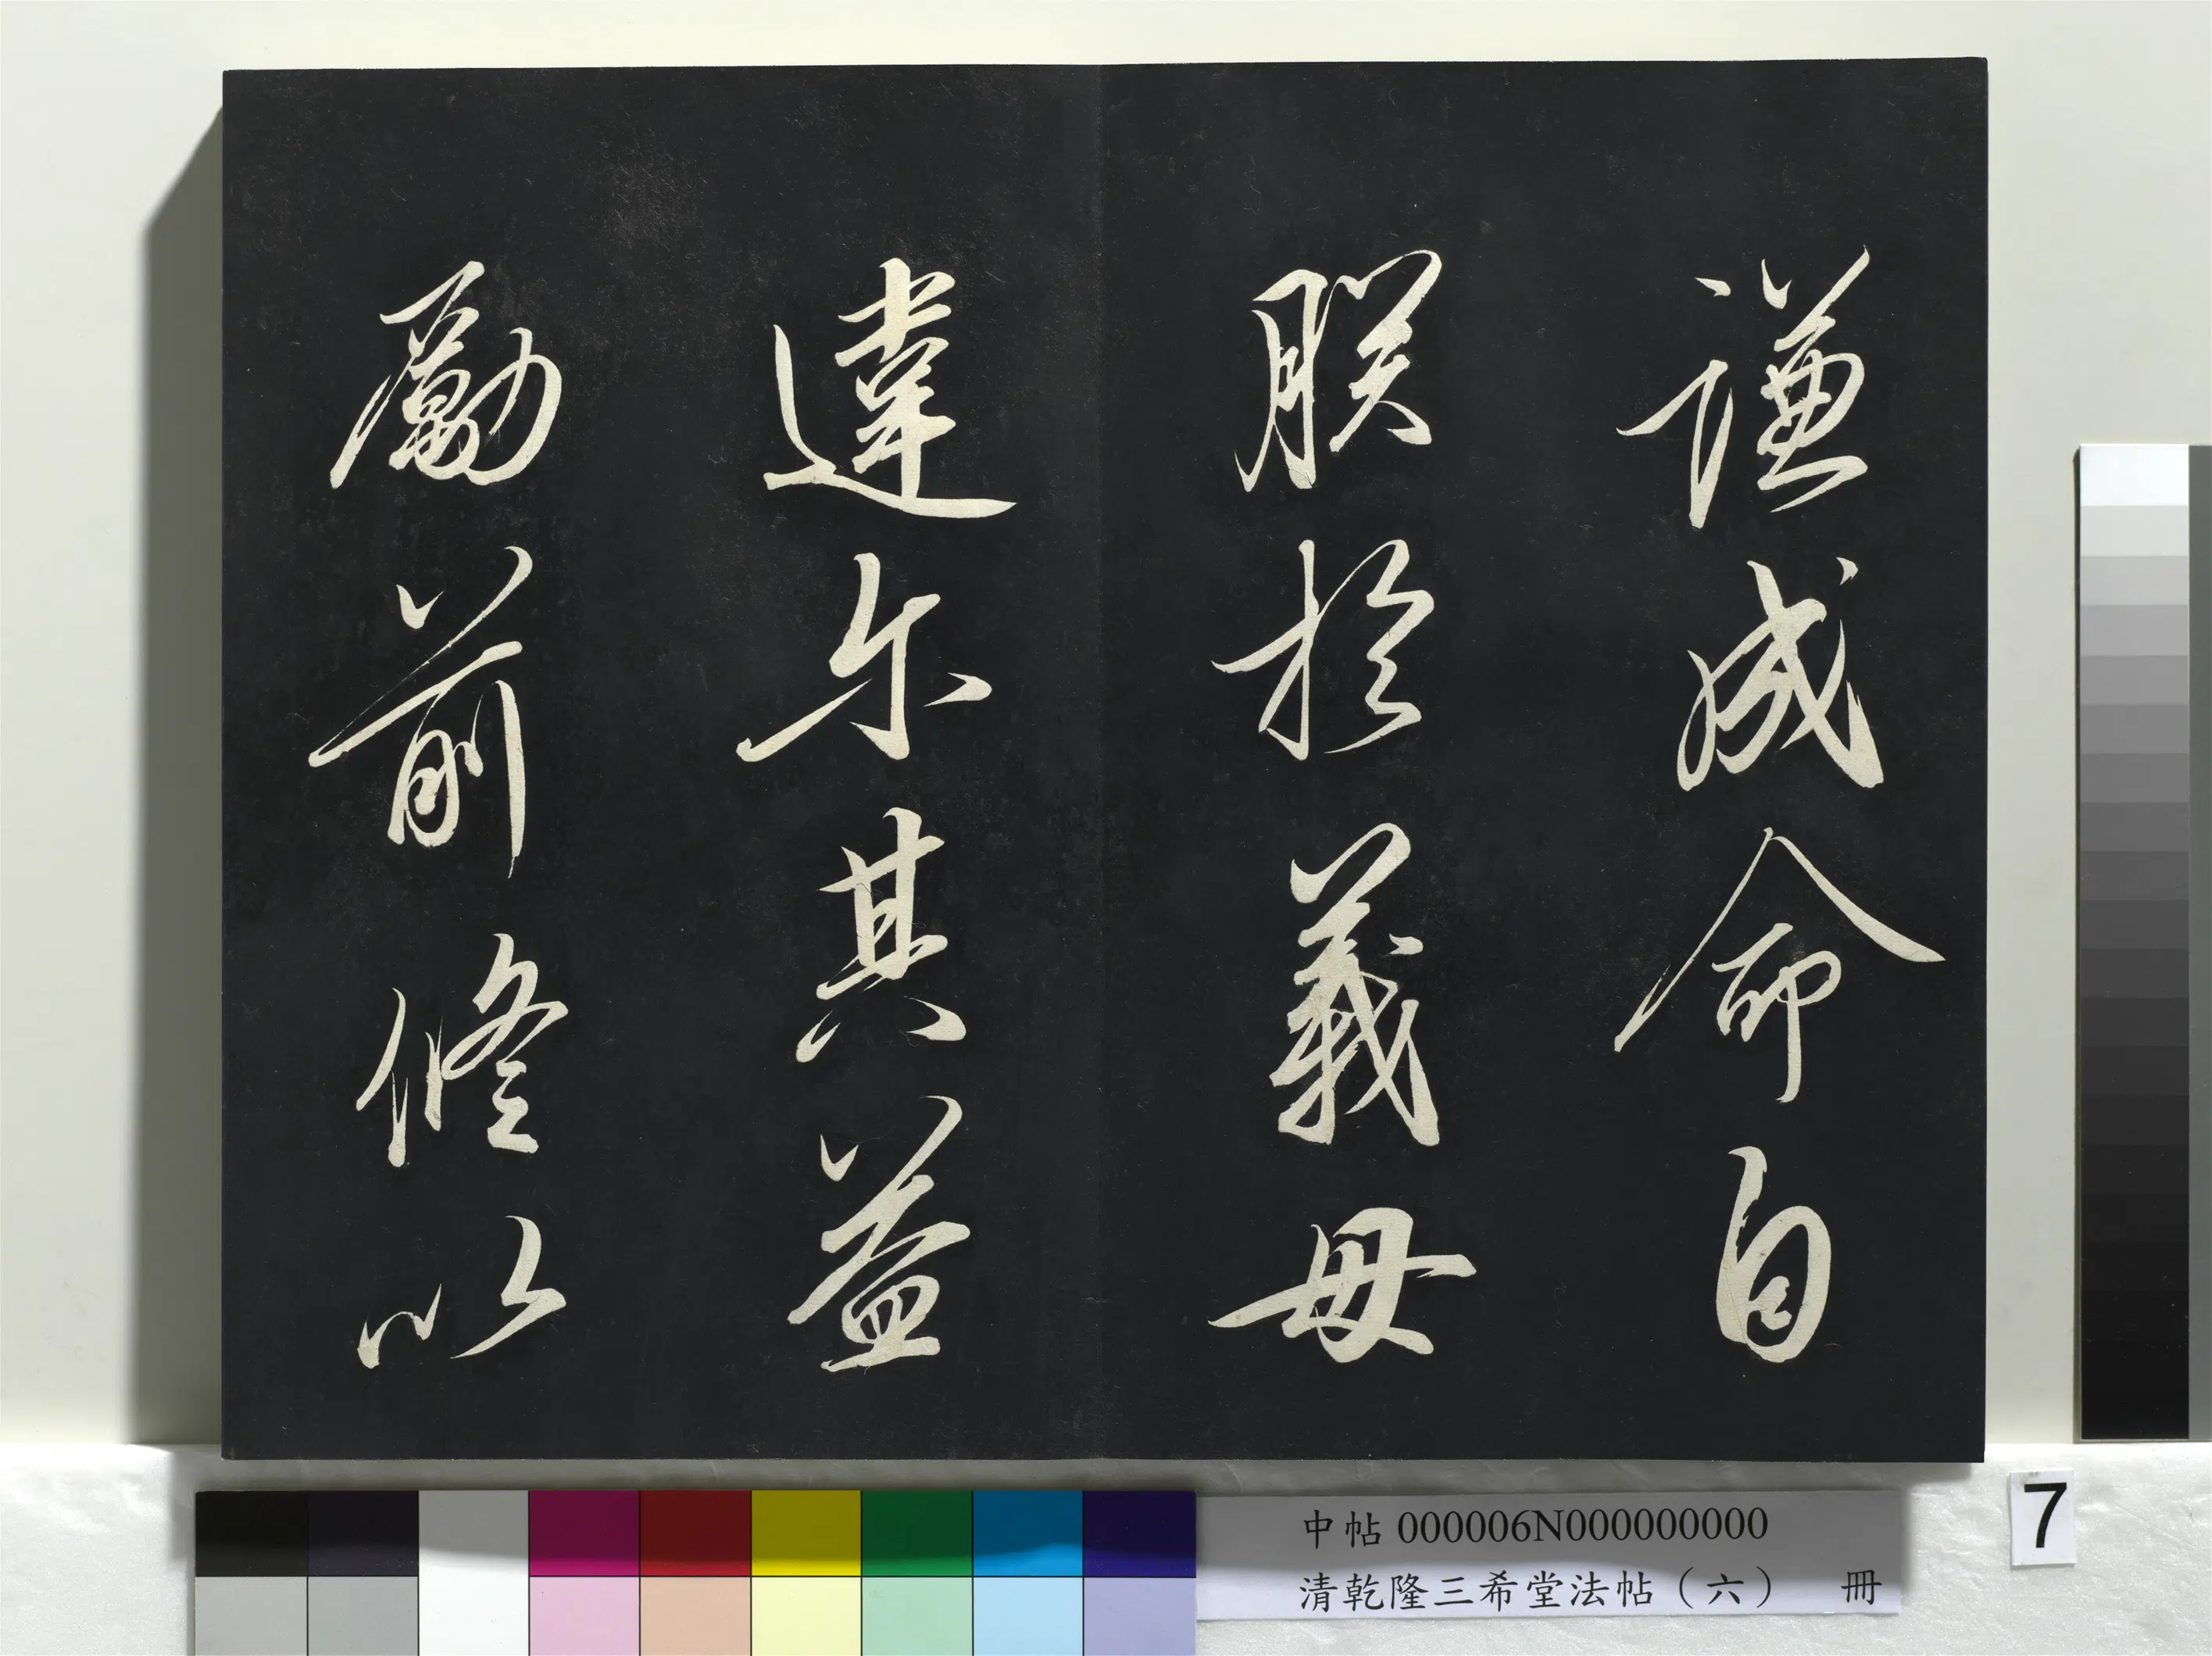 謙成命自
朕於義毋
違尔其益
勵前脩以
中帖 000006N000000000
清乾隆三希堂法帖（六） 冊
7